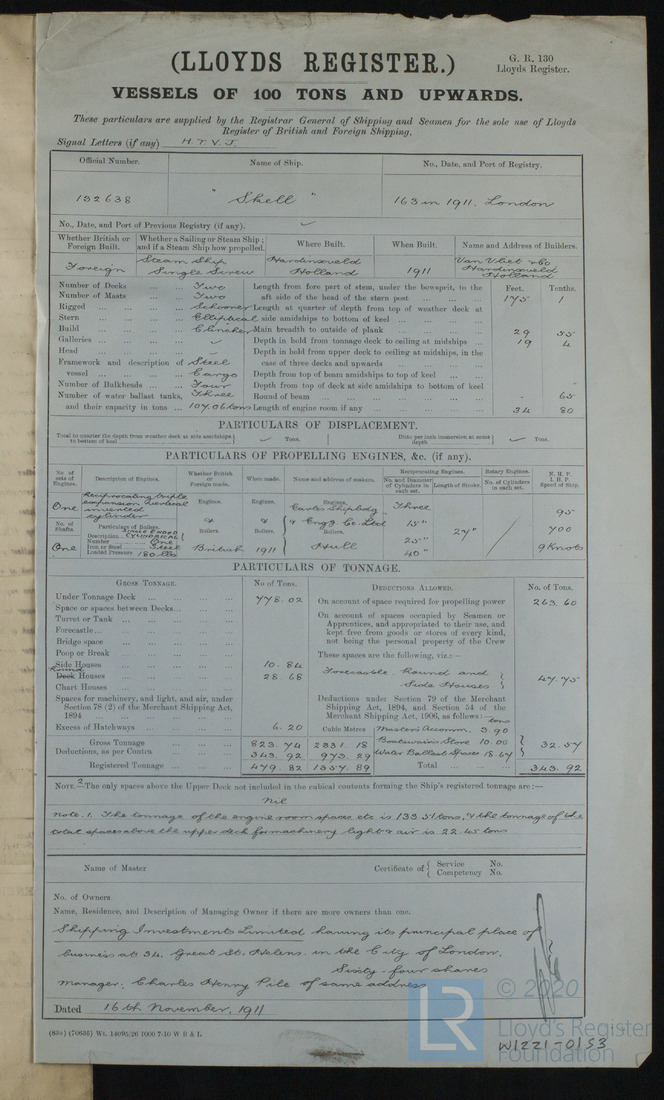 (LLOYDS REGISTER.)
G. R. 130
Lloyds Register.
VESSELS OF 100 TONS AND UPWARDS.
These particulars are supplied by the Registrar General of Shipping and Seamen for the sole use of Lloyds
Register of British and Foreign Shipping.
Signal Letters (if any) H. T. V. J.
Official Number. Name of Ship. No., Date, and Port of Registry.
132638 " Skell " 163 in 1911. London
No., Date, and Port of Previous Registry (if any).
Whether British or Foreign Built. Whether a Sailing or Steam Ship; and if a Steam Ship how propelled. Where Built. When Built. Name and Address of Builders.
Foreign Steam Ship Single Screw Hardinxveld Holland 1911 Van Vliet & Co Hardinxveld Holland
Number of Decks ... Two Length from fore part of stem, under the bowsprit, to the Feet. Tenths.
Number of Masts ... Two aft side of the head of the stern post ... 175 1
Rigged ... Schooner Length at quarter of depth from top of weather deck at
Stern ... Elliptical side amidships to bottom of keel ...
Build ... Clencher Main breadth to outside of plank 29 55
Galleries ... Depth in hold from tonnage deck to ceiling at midships ... 19 4
Head ... Depth in hold from upper deck to ceiling at midships, in the
Framework and description of Steel case of three decks and upwards
vessel ... Cargo Depth from top of beam amidships to top of keel ...
Number of Bulkheads ... Four Depth from top of deck at side amidships to bottom of keel
Number of water ballast tanks, Three Round of beam ... - 65
and their capacity in tons ... 107.06 tons Length of engine room if any ... 34 80
PARTICULARS OF DISPLACEMENT.
Total to quarter the depth from weather deck at side amidships to bottom of keel Tons. Ditto per inch immersion at same depth Tons.
PARTICULARS OF PROPELLING ENGINES, &c. (if any).
No. of sets of Engines. Description of Engines. Whether British or Foreign made. When made. Name and address of makers. Reciprocating Engines. Rotary Engines. N. H. P. I. H. P. Speed of Ship.
No. and Diameter of Cylinders in each set. Length of Stroke. No. of Cylinders in each set.
One Reciprocating triple expansion vertical inverted cylinder Engines. Engines. Earles Shipbldg Three 95
No. of Shafts. Particulars of Boilers. & & & Engg Co. Ltd 15" 27" 700
Description Single Ended Cylindrical Boilers. Boilers. Boilers.
Number One 25"
One Iron or Steel Steel British 1911 Hull 40" 9 Knots
Loaded Pressure 180 lbs
PARTICULARS OF TONNAGE.
GROSS TONNAGE. No of Tons. DEDUCTIONS ALLOWED. No. of Tons.
Under Tonnage Deck ... 778.02 On account of space required for propelling power 263.60
Space or spaces between Decks...
Turret or Tank ... On account of spaces occupied by Seamen or
Forecastle... Apprentices, and appropriated to their use, and
Bridge space kept free from goods or stores of every kind,
Poop or Break not being the personal property of the Crew
Side Houses 10.84 These spaces are the following, viz.:—
Round Deck Houses 28.68 Forecastle, Round and Side Houses 47.75
Chart Houses
Spaces for machinery, and light, and air, under Deductions under Section 79 of the Merchant
Section 78 (2) of the Merchant Shipping Act, Shipping Act, 1894, and Section 54 of the
1894 Merchant Shipping Act, 1906, as follows:— tons
Excess of Hatchways ... 6.20 Cubic Metres Master's Accomm. 3.90
Gross Tonnage 823.74 2331.18 Boatswain's Store 10.00 32.57
Deductions, as per Contra 343.92 973.29 Water Ballast Spaces 18.67
Registered Tonnage 479.82 1357.89 Total 343.92
NOTE. 2 —The only spaces above the Upper Deck not included in the cubical contents forming the Ship's registered tonnage are:—
Nil
Note. 1. The tonnage of the engine room spaces etc is 133.51 tons, & the tonnage of the
total spaces above the upper deck for machinery light & air is 22.45 tons
Name of Master Certificate of { Service No.
Competency No.
No. of Owners.
Name, Residence, and Description of Managing Owner if there are more owners than one.
Shipping Investments Limited having its principal place of
business at 34, Great St. Helens. in the City of London,
Sixty-four shares
Manager, Charles Henry Pile of same address
Dated 16th November, 1911
(83*) (70635) Wt. 14095/26 1000 7-10 W B & L
LR
© 2020
Lloyd's Register
Foundation
W1221-0153